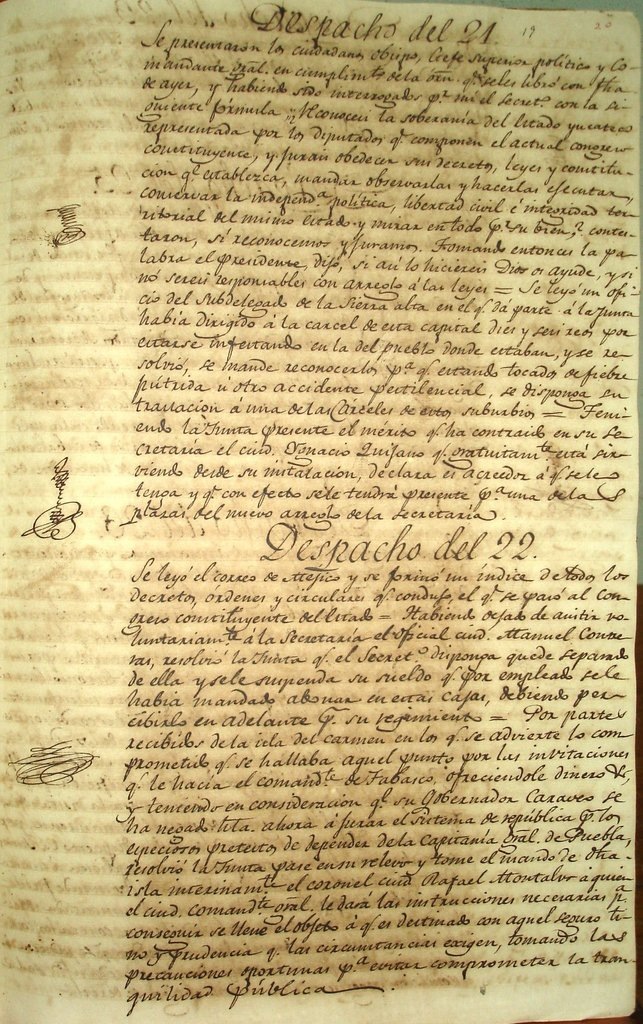 Despacho del 21. 19
Se presentaron los ciudadanos obispo, Gefe superior politico y Co-
mandante Gral. en cumplimto. de la orn. qe. seles libró con fha
de ayer, y habiendo sido interrogados pr. mi el Secreto. con la si-
guiente fórmula: Reconoceis la soberania del Estado yucateco
representada por los diputados qe. componen el actual congreso
constituyente, y jurais obedecer sus decretos, leyes y constitu-
cion qe. establezca, mandar observarlas y hacerlas ejecutar,
conservar la independa. política, libertad civil é integridad ter-
ritorial del mismo Estado y mirar en todo pr. su bien? contes-
taron, sí reconocemos y juramos. Tomando entonces la pa-
labra el presidente, dijo, si así lo hiciereis Dios os ayude, y si
nó sereis responsables con arreglo á las leyes = Se leyó un ofi-
cio del Subdelegado de la Sierra alta en el qe. dá parte á la Junta
habia dirigido á la carcel de esta capital dies y seis reos por
estarse infestando en la del pueblo donde estaban, y se re-
solvió, se mande reconocerlos pa. qe. estando tocados de fiebre
pútrida ú otro accidente pestilencial, se disponga su
traslacion á una de las Carceles de estos suburbios = Teni-
endo la Junta presente el mérito qe. ha contraido en su Se-
cretaria el ciud. Ygnacio Quijano qe. gratuitamte. está sir-
viendo desde su instalacion, declara es acreedor á qe. sele
tenga y qe. con efecto sele tendrá presente pa. una de las
plazas del nuevo arreglo de la Secretaría.
Despacho del 22.
Se leyó el correo de Mégico y se formó un índice de todos los
decretos, ordenes y circulares qe. condujo, el qe. se pasó al Con-
greso constituyente del Estado = Habiendo dejado de asistir vo-
luntariamte. á la Secretaría el oficial ciud. Manuel Contre-
ras, resolvió la Junta qe. el Secreto. disponga quede separado
de ella y sele suspenda su sueldo qe. por empleado sele
habia mandado abonar en estas cajas, debiendo per-
cibirlo en adelante pr. su regimiento = Por partes
recibidos de la isla del Carmen en los qe. se advierte lo com-
prometido qe. se hallaba aquel punto por las invitaciones
qe. le hacía el comandte. de Tabasco, ofreciendole dinero &,
y teniendo en consideracion qe. su Gobernador Caraveo se
ha negado hta. ahora á jurar el sistema de república pr. los
especiosos pretextos de depender de la Capitanía Gral. de Puebla,
resolvió la Junta pase en su relevo y tome el mando de dha
isla interinamte. el coronel ciud. Rafael Montalvo á quien
el ciud. Comandte. gral. le dará las instrucciones necesarias pa.
conseguir se lleve el objeto á qe. es destinado con aquel seguro ti-
no y prudencia qe. las circunstancias exigen, tomando las
precauciones oportunas pa. evitar comprometer la tran-
quilidad pública